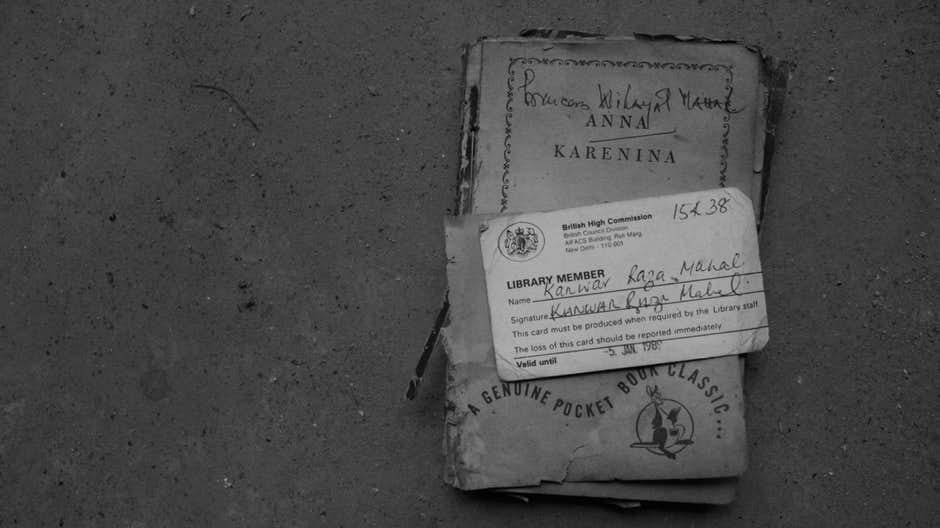 Princess Wilayat Mahal
ANNA
KARENINA
British High Commission
British Council Division
AIFACS Building, Rafi Marg
New Delhi - 110 001
15A 38
LIBRARY MEMBER
Name Kanwar Raza Mahal
Signature KUNWAR Raza Mahal.
This card must be produced when required by the Library staff
The loss of this card should be reported immediately
Valid until -5. JAN 1989
A GENUINE POCKET BOOK CLASSIC...